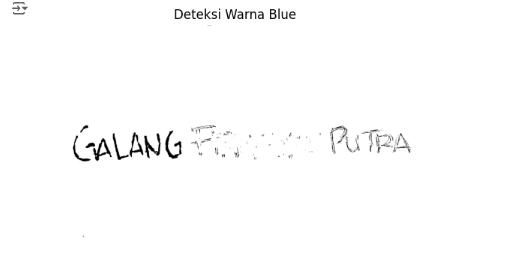 Deteksi Warna Blue
GALANG PUTRA